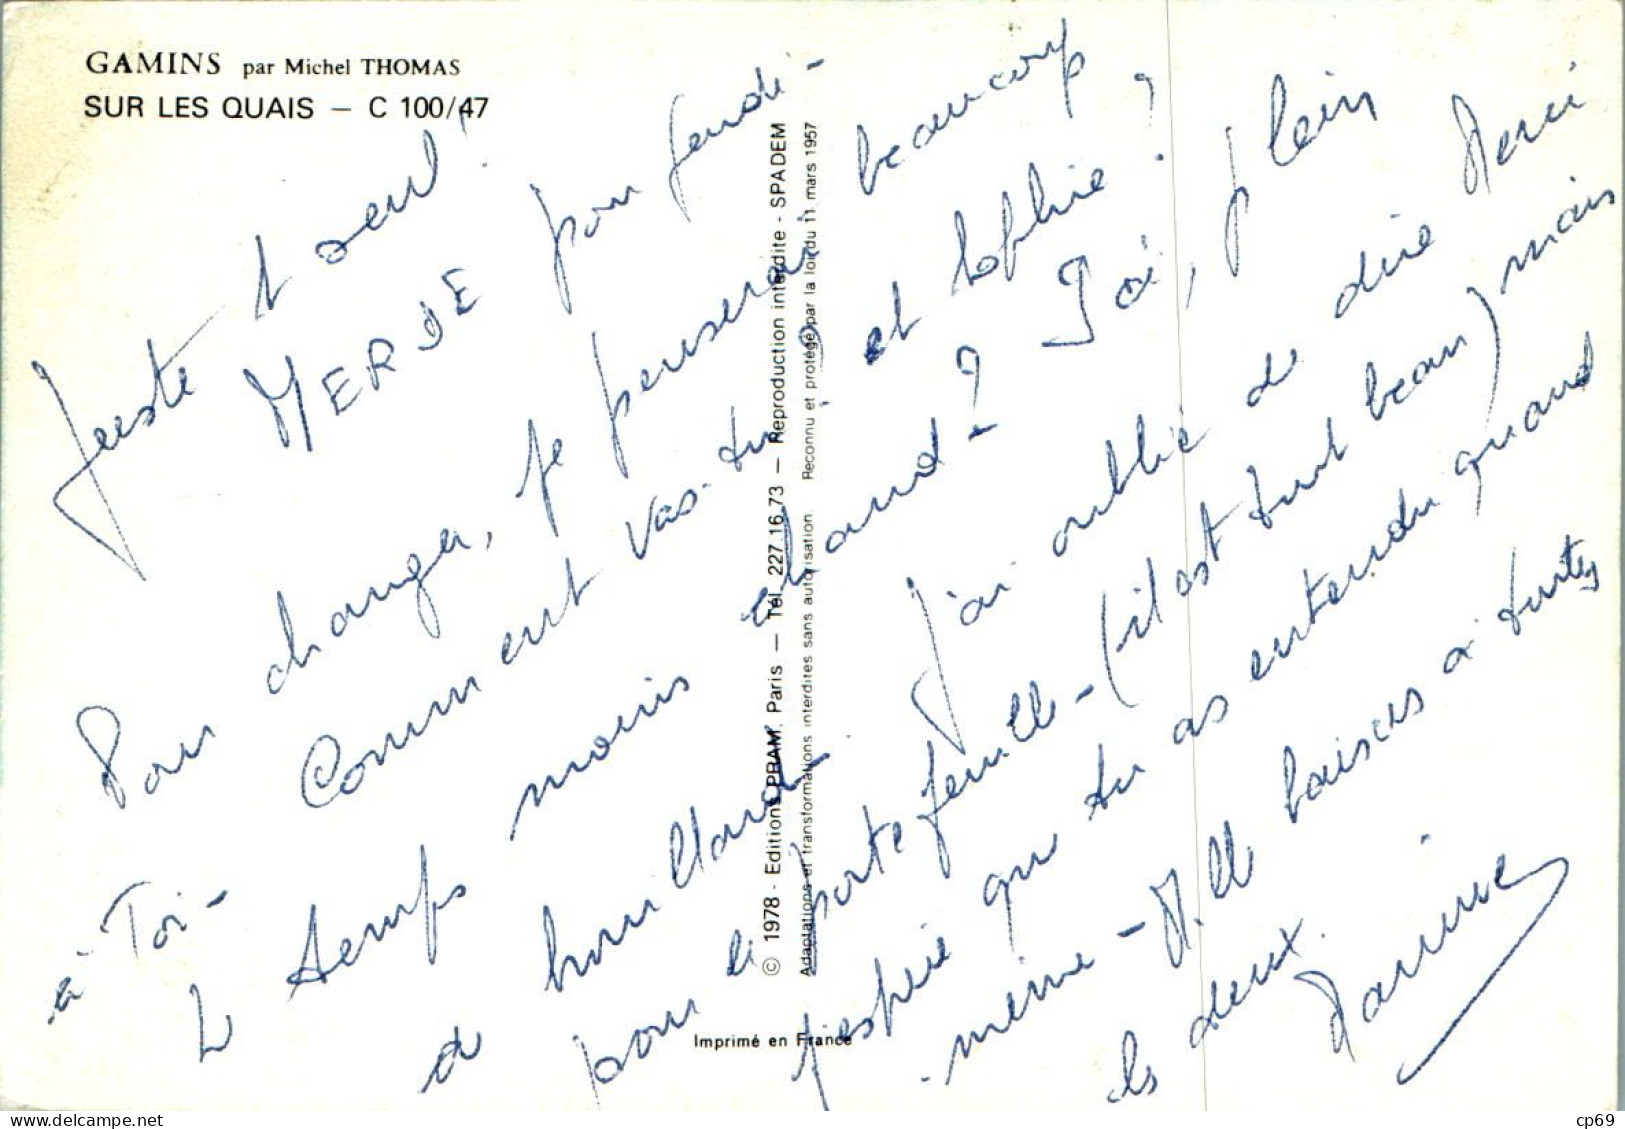 GAMINS par Michel THOMAS
SUR LES QUAIS – C 100/47
Juste 1 seul !
MERDE pour jeudi -
Pour changer, je penserai beaucoup
à Toi - Comment vas-tu ? et Sophie ?
Le temps moins chaud ? Ici, plein
de brouillard J'ai oublié de dire Merci
pour le portefeuille - (il est tout beau) mais
j'espère que tu as entendu quand
même - Mille baisers à toutes
les deux.
Janine
© 1978 - Editions PRAM. Paris — Tél. 227.16.73 — Reproduction interdite - SPADEM
Adaptations et transformations interdites sans autorisation Reconnu et protégé par la loi du 11 mars 1957
Imprimé en France
https://www.delcampe.net
cp69